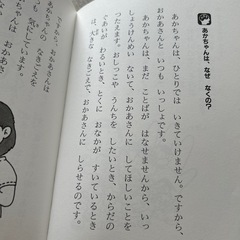 あかちゃんは、なぜ なくの?
あかちゃんは、ひとりでは いきていけません。ですから、
おかあさんと いつも いっしょです。
あかちゃんは、まだ ことばが はなせませんから、いっ
しょうけんめい ないて、おかあさんに してほしいことを
つたえます。おしっこや うんちを したいとき、からだの
ぐあいが わるいとき、とくに おなかが すいているとき
は、大きな なきごえで、おかあさんに しらせるのです。